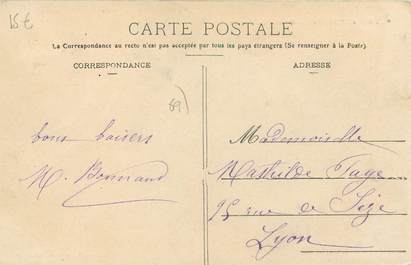 15 €
CARTE POSTALE
La Correspondance au recto n'est pas acceptée par tous les pays étrangers (Se renseigner à la Poste).
CORRESPONDANCE
ADRESSE
69
bons baisers
M. Bonnand
Mademoiselle
Mathilde Faye
95 rue de Sèze
Lyon